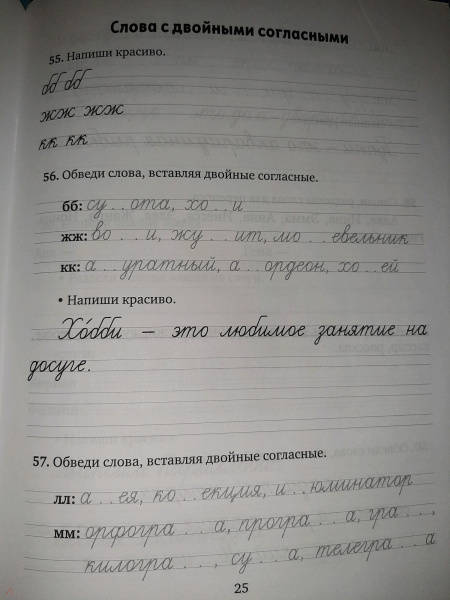 Слова с двойными согласными
55. Напиши красиво.
бб бб
жж жж
кк кк
56. Обведи слова, вставляя двойные согласные.
бб: су . . ота, хо . . и
жж: во . . и, жу . . ит, мо . . евельник
кк: а . . уратный, а . . ордеон, хо . . ей
• Напиши красиво.
Хо́бби – это любимое занятие на
досуге.
57. Обведи слова, вставляя двойные согласные.
лл: а . . ея, ко . . екция, и . . юминатор
мм: орфогра . . а, програ . . а, гра . . ,
килогра . . , су . . а, телегра . . а
25